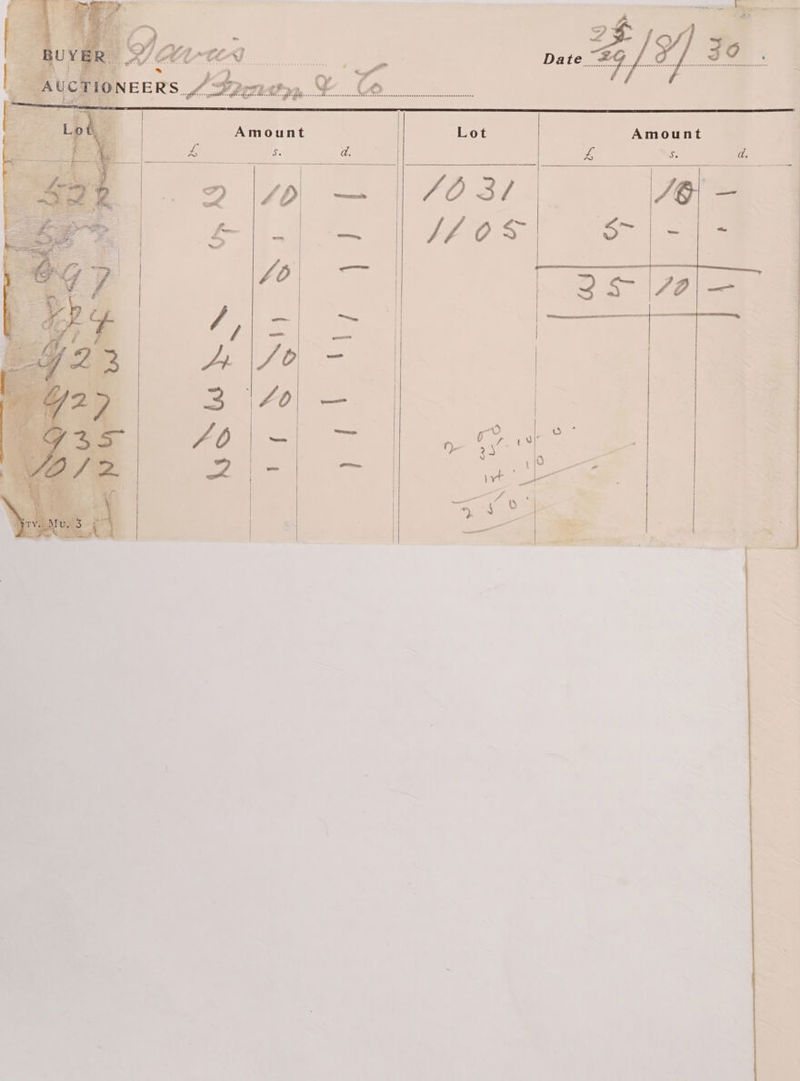 BUYER Davis Date 29/8/30.
AUCTIONEERS Brown & Co
Lot Amount Lot Amount
£ s. d. £ s. d.
522 2 10 — 1031 10 —
5 - — 1105 5 - -
697 10 —
35 10 —
724 1, - -
923 4 10 -
927 3 10 —
935 10 - —
1012 2 - —
Frv. Mu. 3